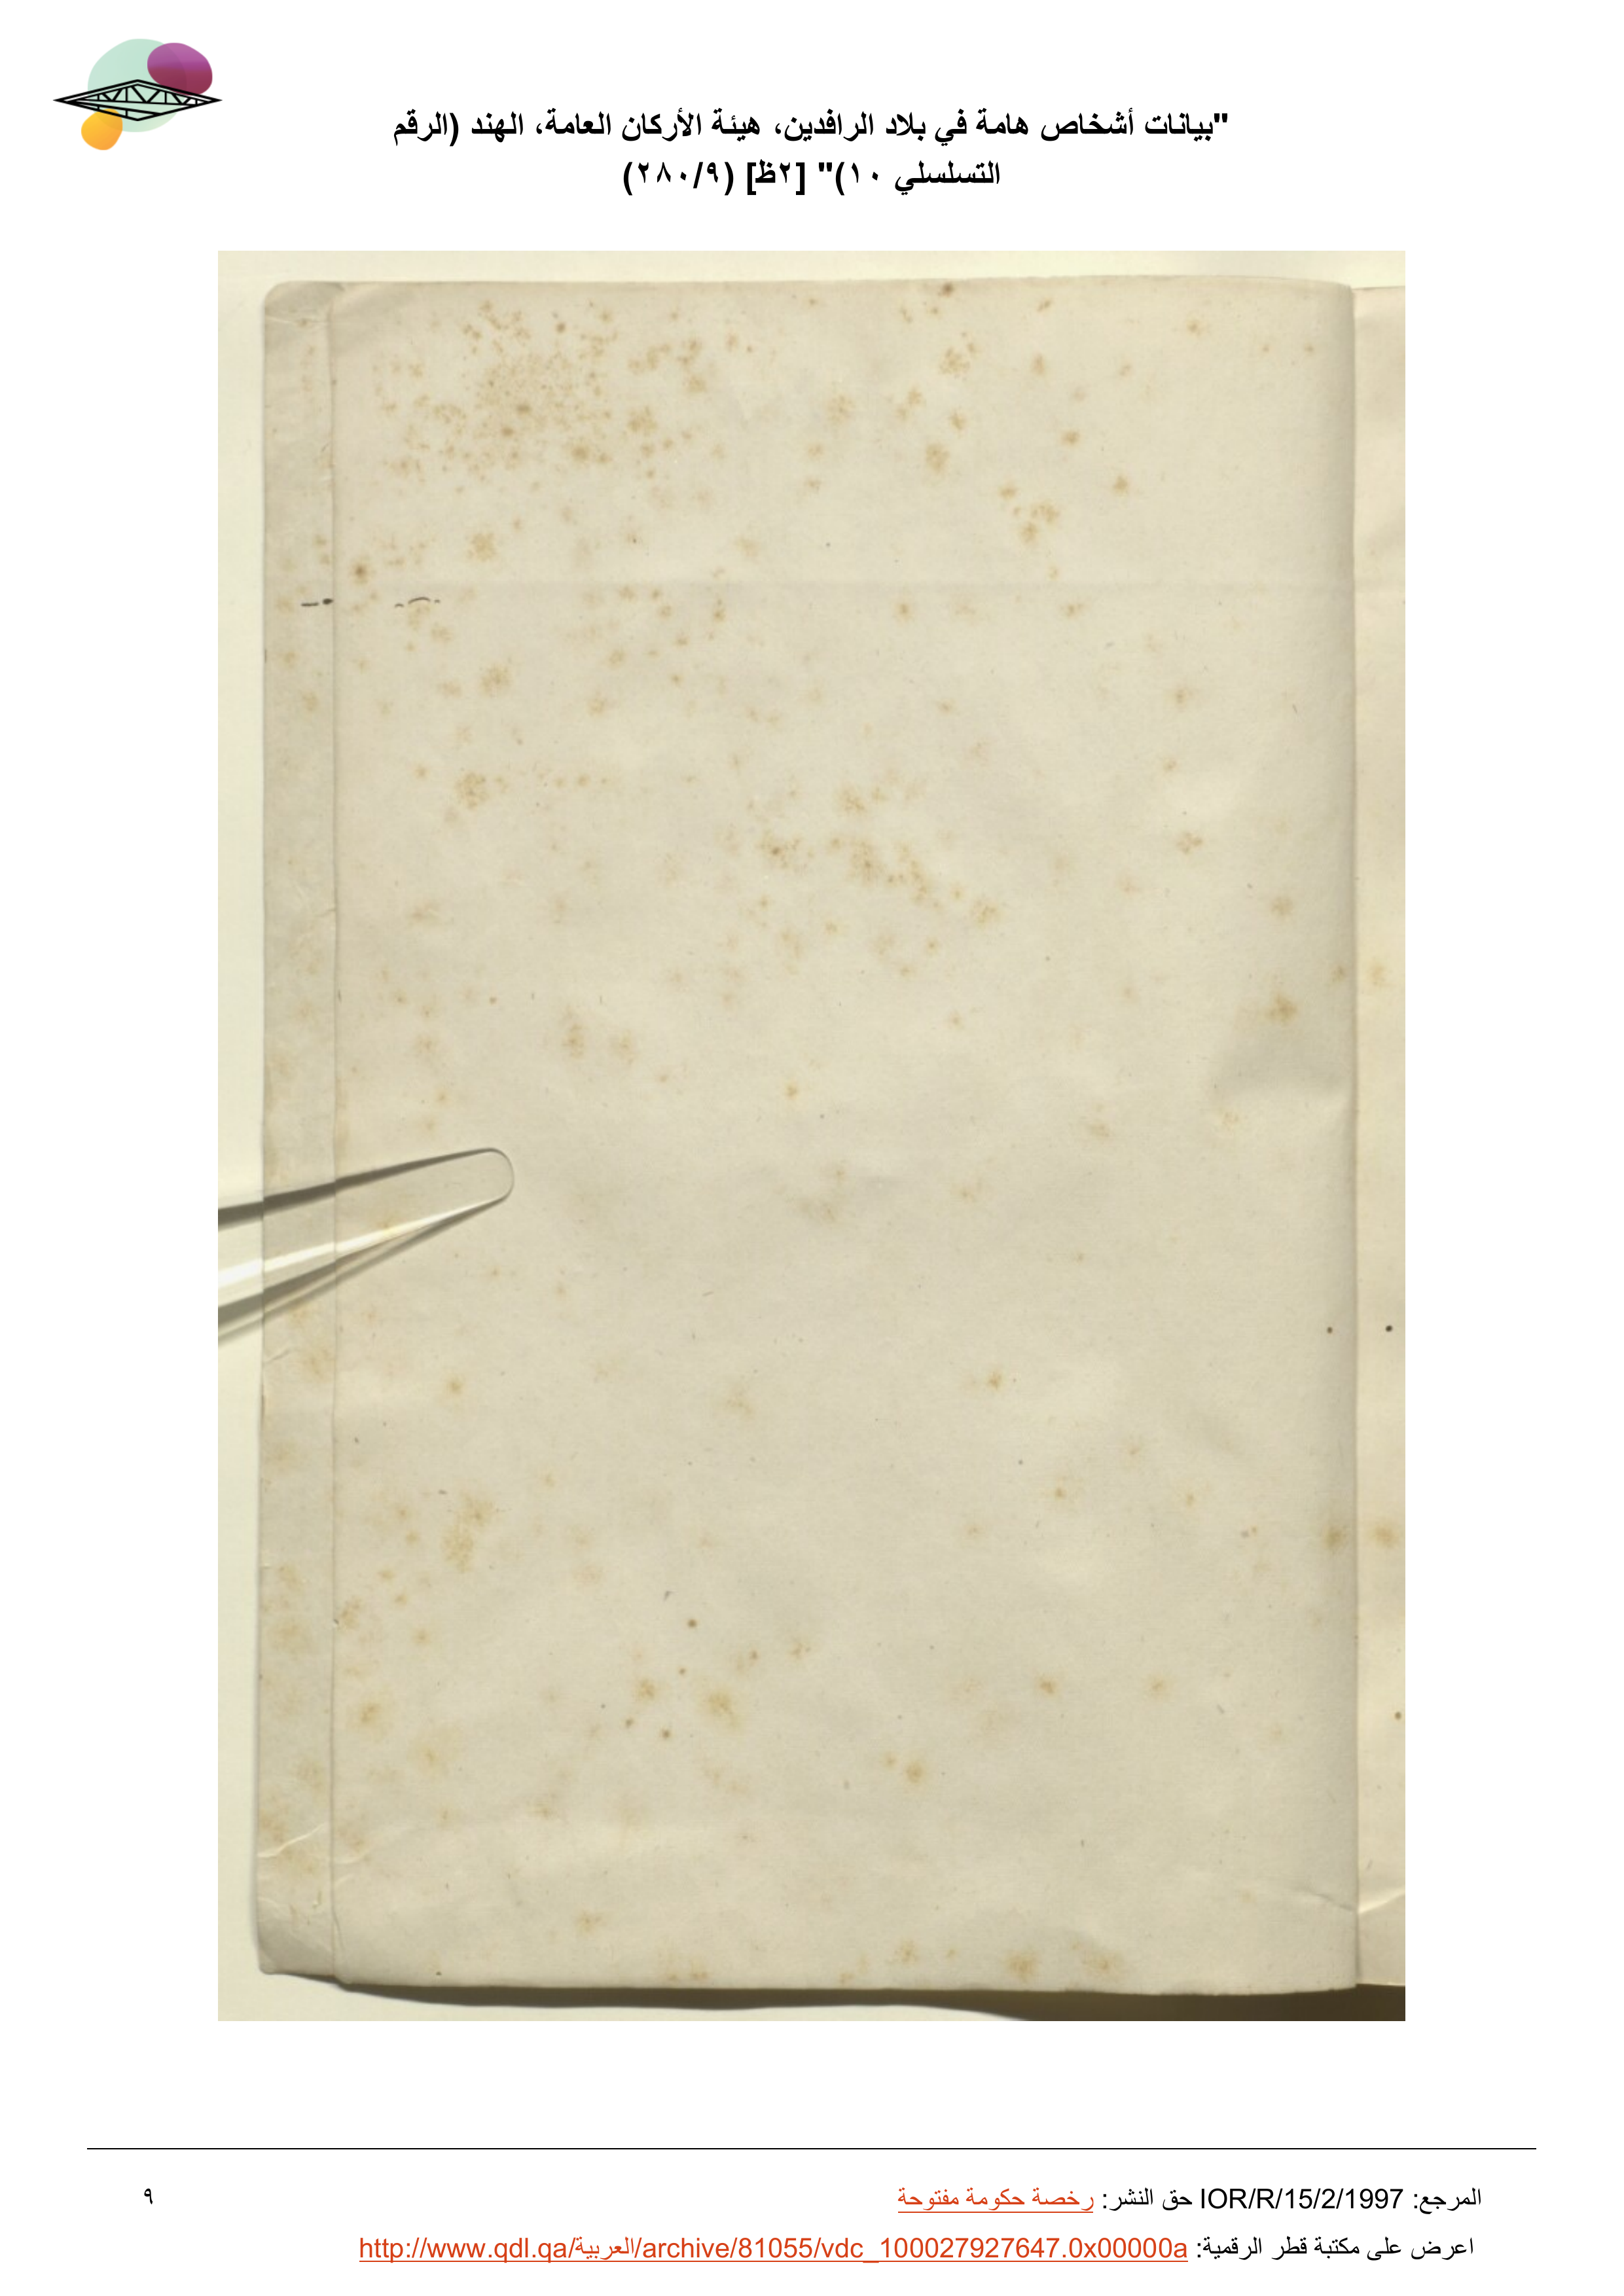 "بيانات أشخاص هامة في بلاد الرافدين، هيئة الأركان العامة، الهند (الرقم
التسلسلي ١٠)" [٢ظ] (٢٨٠/٩)
المرجع: IOR/R/15/2/1997 حق النشر: رخصة حكومة مفتوحة
٩
اعرض على مكتبة قطر الرقمية: http://www.qdl.qa/العربية/archive/81055/vdc_100027927647.0x00000a